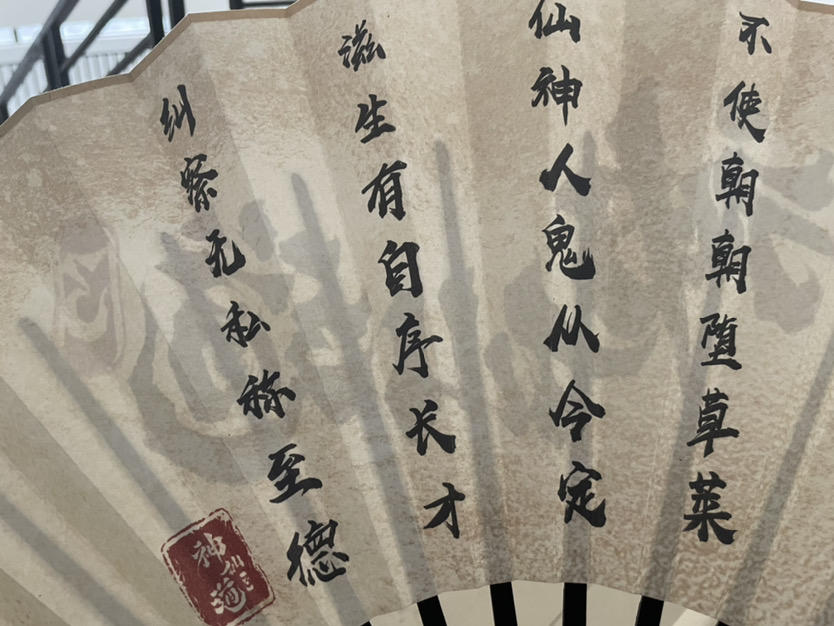 不使朝朝堕草莱
仙神人鬼从今定
滋生有自序长才
纠察无私称至德
神仙道